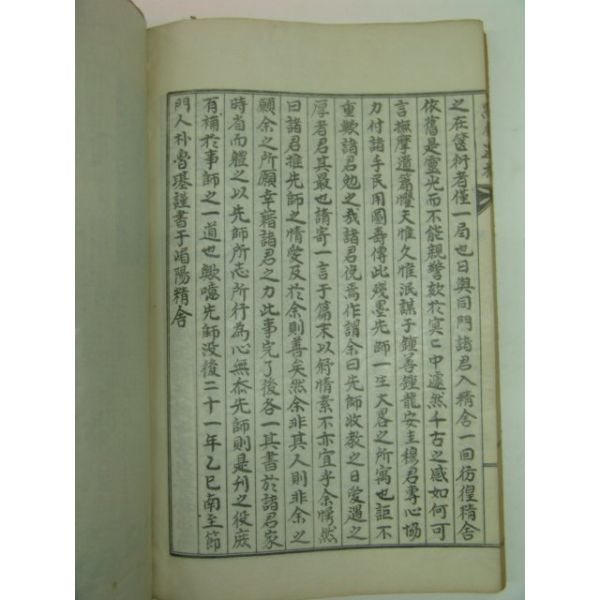 之在篋衍者僅一局也日與同門諸君入精舍一回彷徨精舍
依舊是靈光而不能親警欬於冥冥中遽然千古之感如何可
言撫摩遺篇懼天惟久惟泯謀于鍾善鍾龍安圭穆君專心協
力付諸手民用圖壽傳此殘墨先師一生大畧之所寓也詎不
重歟諸君勉之哉諸君俛焉作謂余曰先師敎之日愛遇之
厚者君其最也請寄一言于篇末以舒情素不亦宜乎余愕然
曰諸君推先師之情愛及於余則善矣然余非其人則非余之
願余之所願幸藉諸君之力此事完了後各一其書於諸君家
時省而軆之以先師所志所行為心無忝先師則是刋之役庶
有補於事師之一道也歟噫先師沒後二十一年乙巳南至節
門人朴魯 謹書于嵋陽精舍